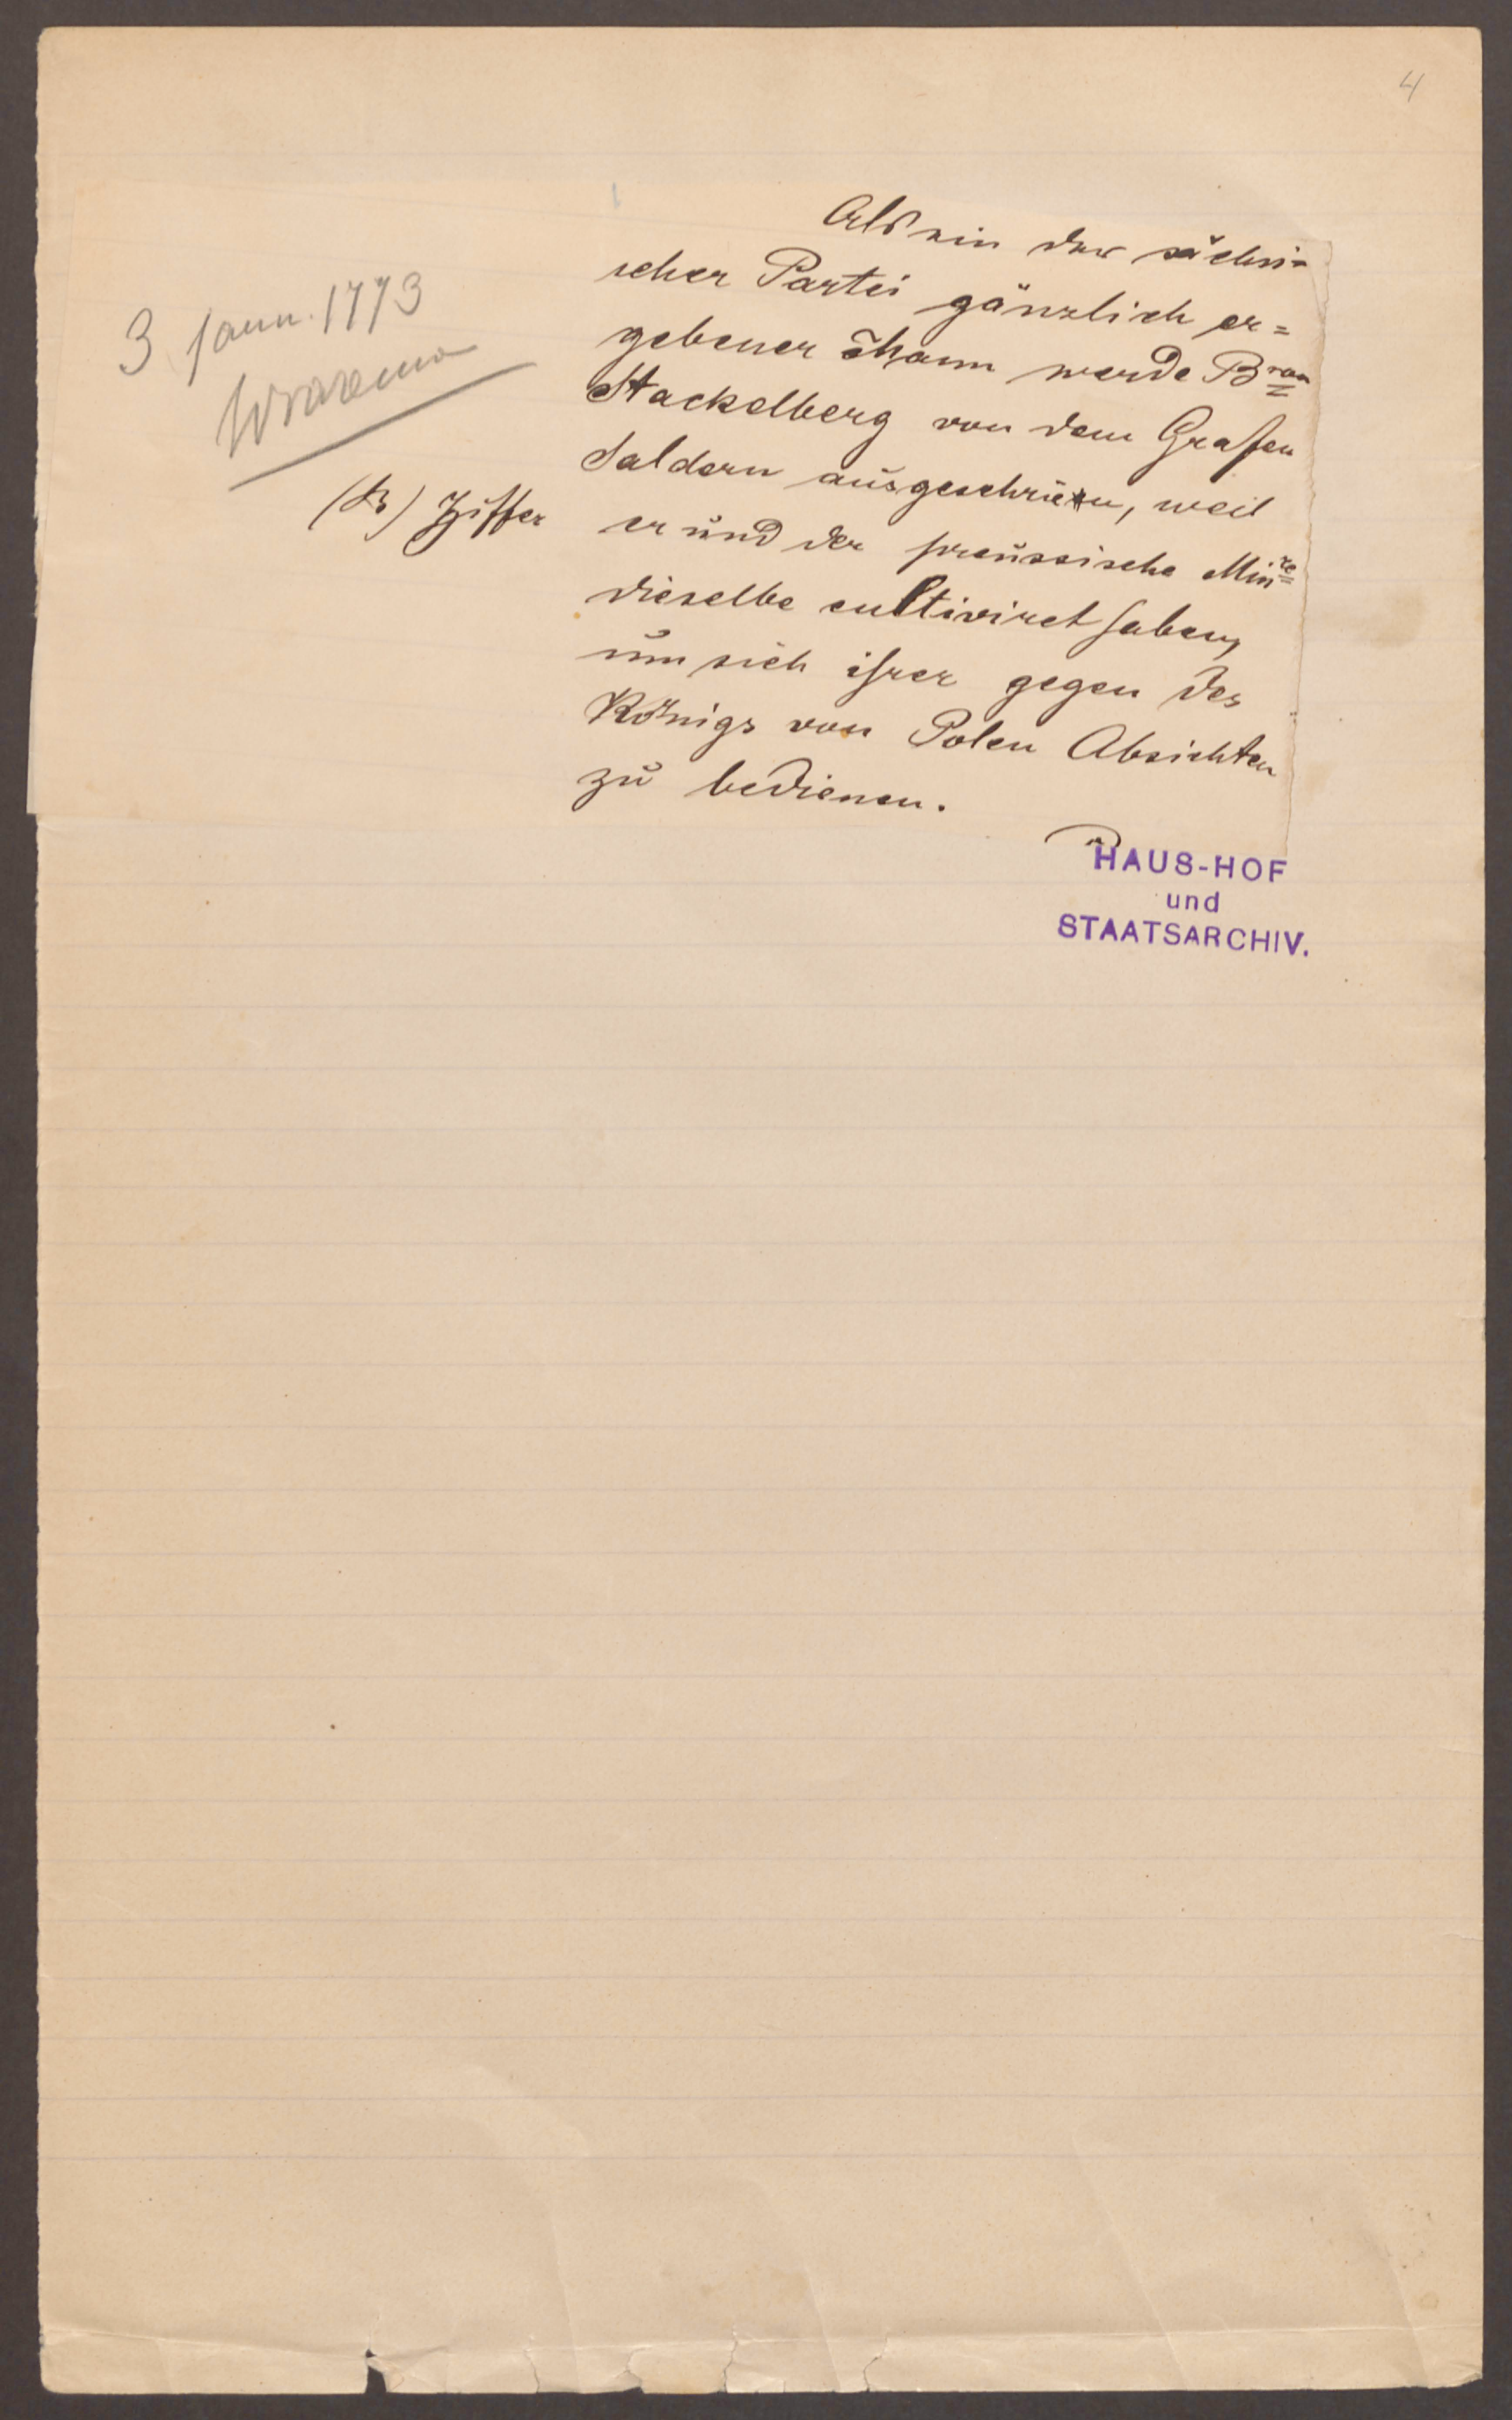 4
3 Jann. 1773
(B) Ziffer
Als ein der sächsi-
scher Partei gänzlich er=
gebener Mann werde Bron
Stackelberg von dem Grafen
Saldern ausgeschrieen, weil
er und der preussische Minre
dieselbe cultiviret haben,
um sich ihrer gegen des
Königs von Polen Absichten
zu bedienen.
HAUS-HOF
und
STAATSARCHIV.